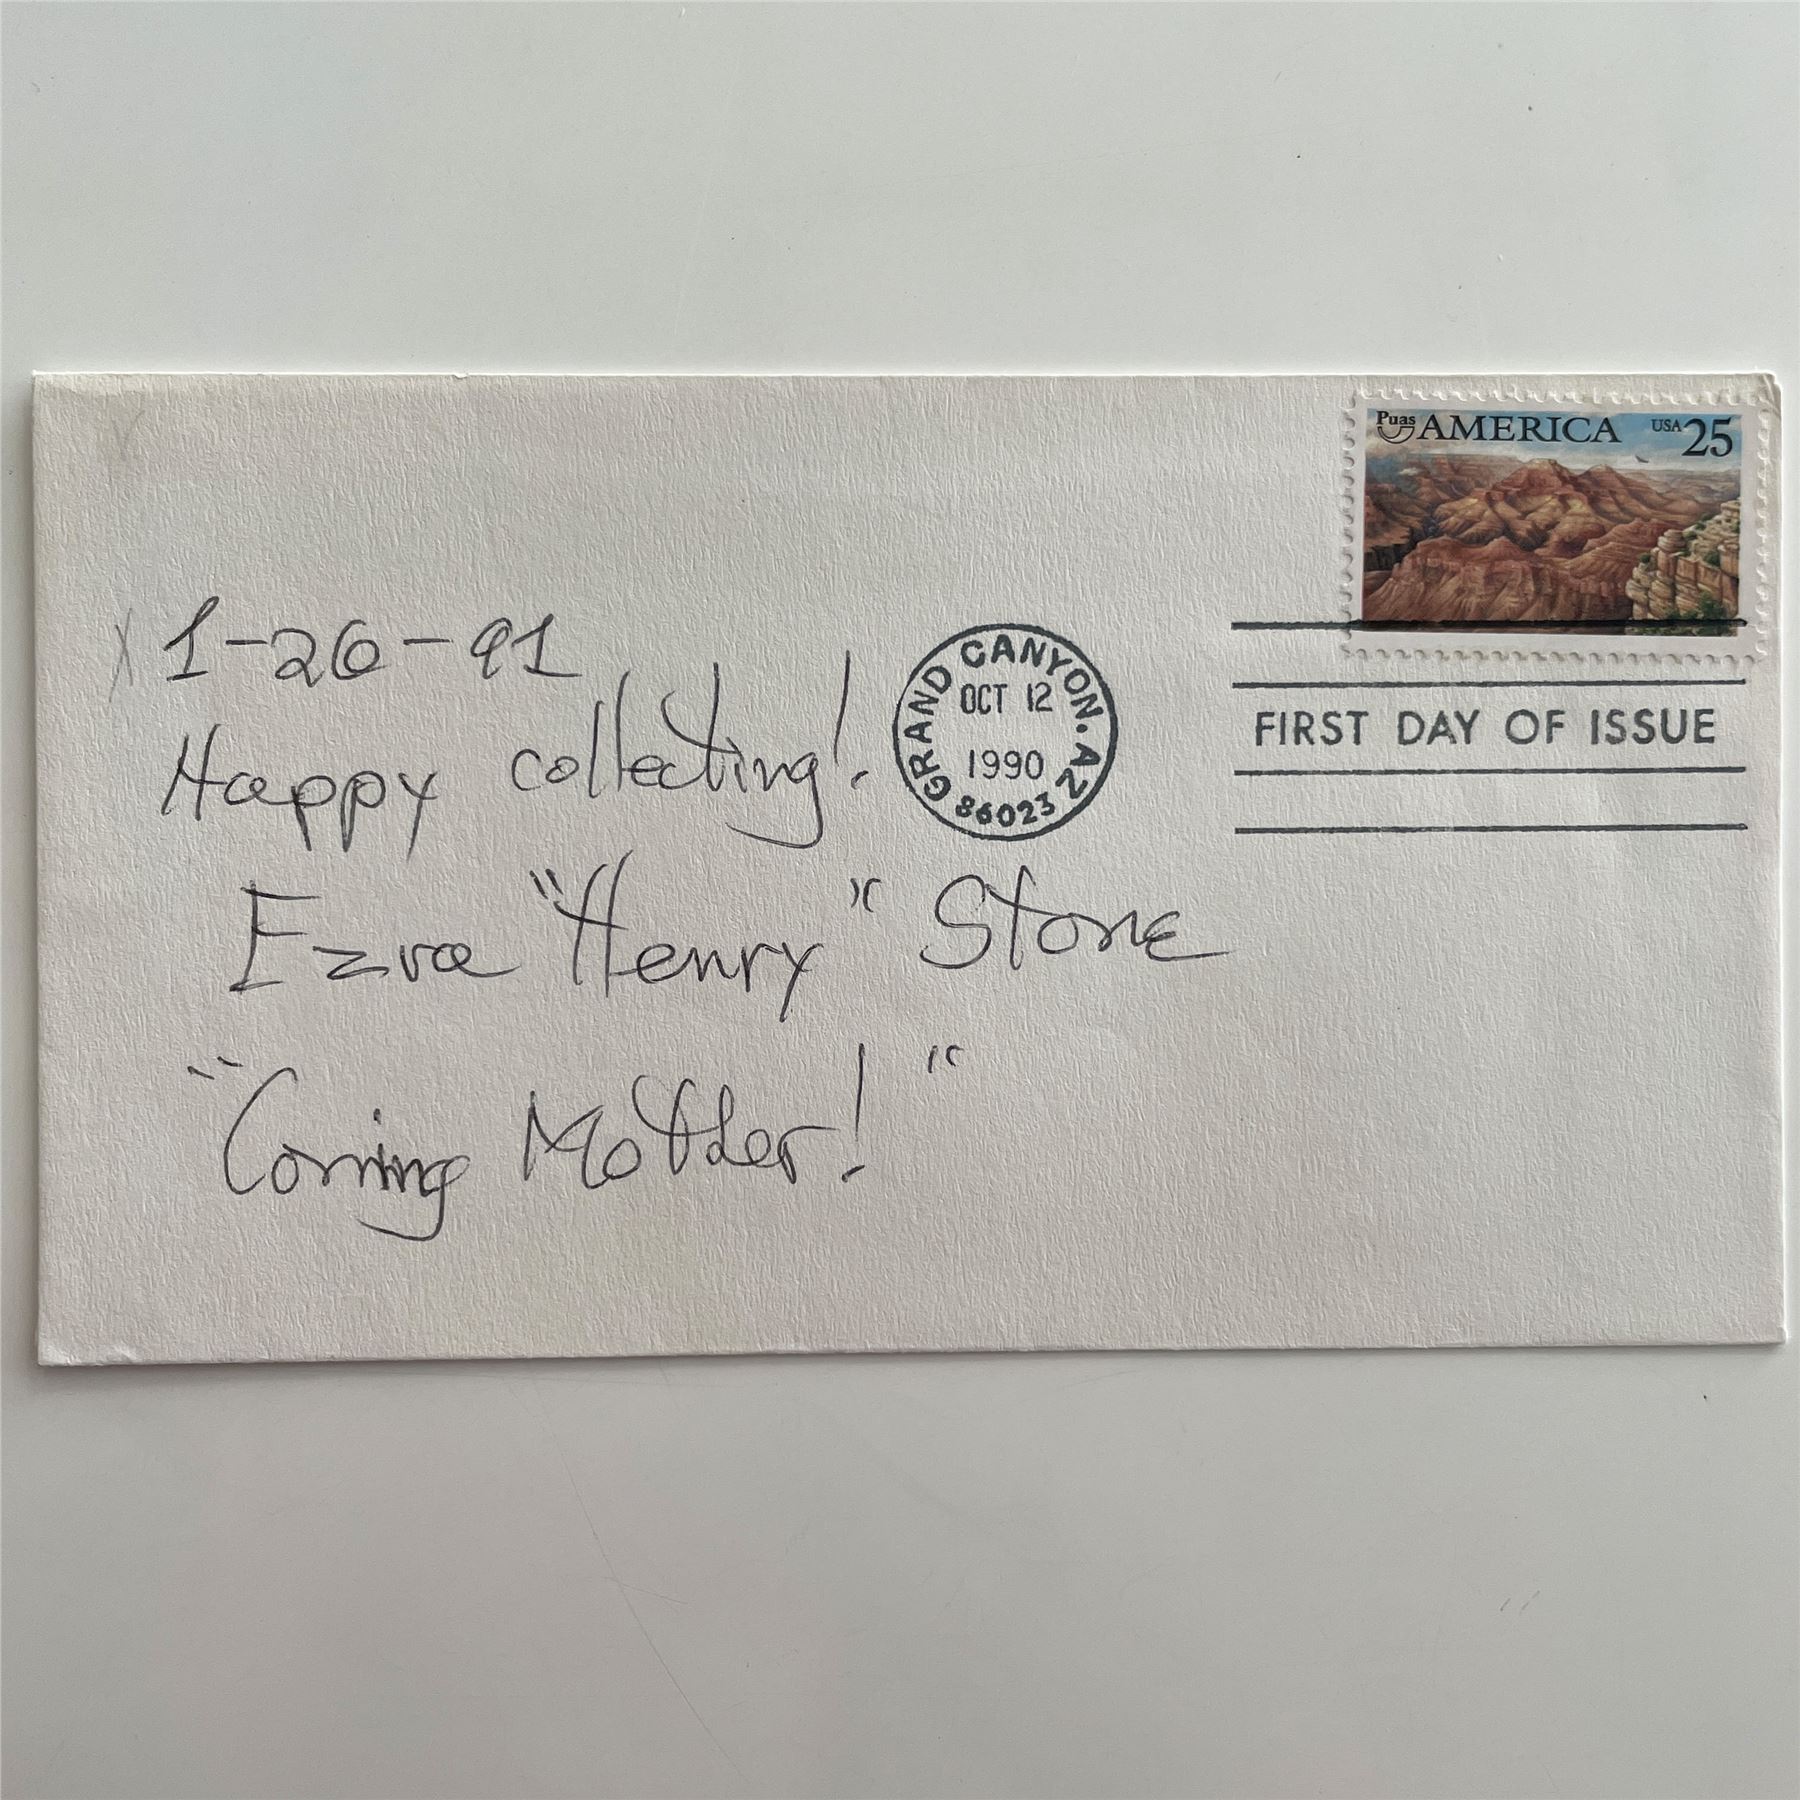 Puas AMERICA USA 25
1-26-91
Happy collecting!
GRAND CANYON. AZ
OCT 12
1990
86023
FIRST DAY OF ISSUE
Ezra "Henry" Stone
"Coming Mother!"